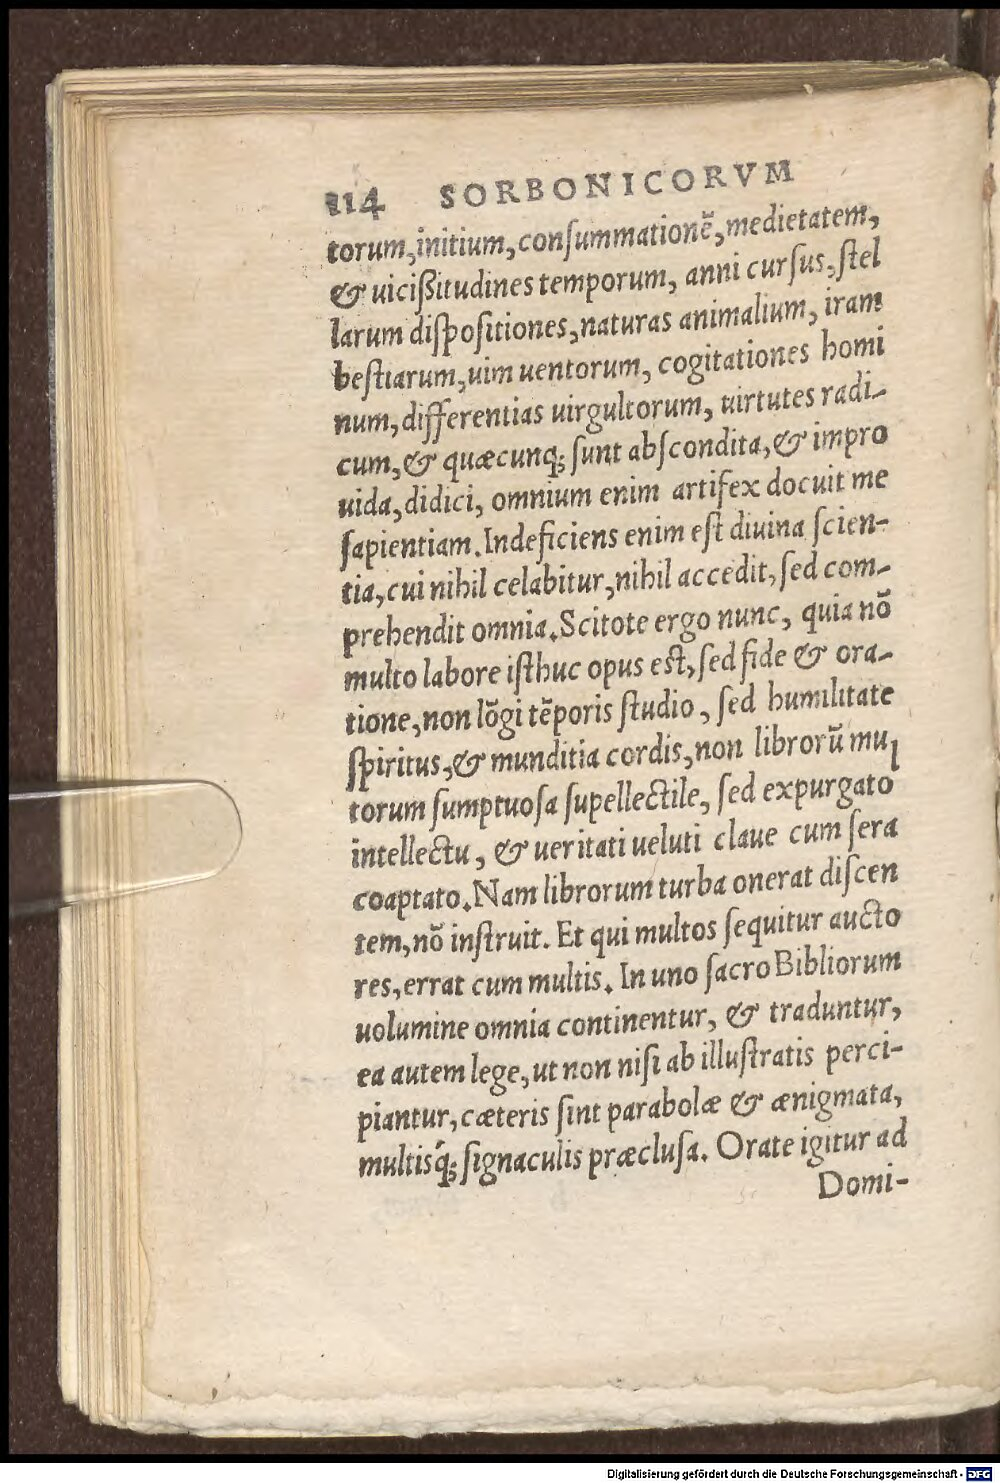 114 SORBONICORVM
torum,initium,conſummationẽ,medietatem,
& uicißitudines temporum, anni curſus, ſtel
larum diſpoſitiones,naturas animalium, iram
beſtiarum,uim uentorum, cogitationes homi
num,differentias uirgultorum, uirtutes radi-
cum,& quæcunq; ſunt abſcondita,& impro
uida,didici, omnium enim artifex docuit me
ſapientiam.Indeficiens enim eſt diuina ſcien-
tia,cui nihil celabitur,nihil accedit, ſed com-
prehendit omnia.Scitote ergo nunc, quia nõ
multo labore iſthuc opus eſt, ſed fide & ora-
tione,non lõgi tẽporis ſtudio, ſed humilitate
ſpiritus,& munditia cordis,non librorũ mu
torum ſumptuoſa ſupellectile, ſed expurgato
intellectu, & ueritati ueluti claue cum ſera
coaptato.Nam librorum turba onerat diſcen
tem,nõ inſtruit. Et qui multos ſequitur aucto
res,errat cum multis. In uno ſacro Bibliorum
uolumine omnia continentur, & traduntur,
ea autem lege,ut non niſi ab illuſtratis perci-
piantur,cæteris ſint parabolæ & ænigmata,
multisq́; ſignaculis præcluſa. Orate igitur ad
Domi-
Digitalisierung gefördert durch die Deutsche Forschungsgemeinschaft - DFG